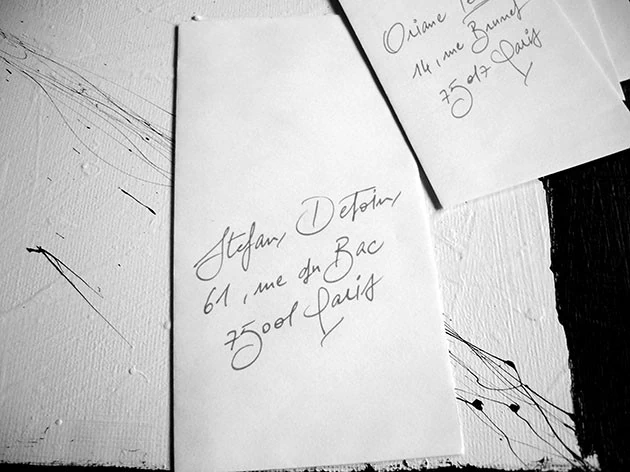 Stefan Detoin
61, rue du Bac
75001 Paris
Oriane
14, rue Brunel
75017 Paris